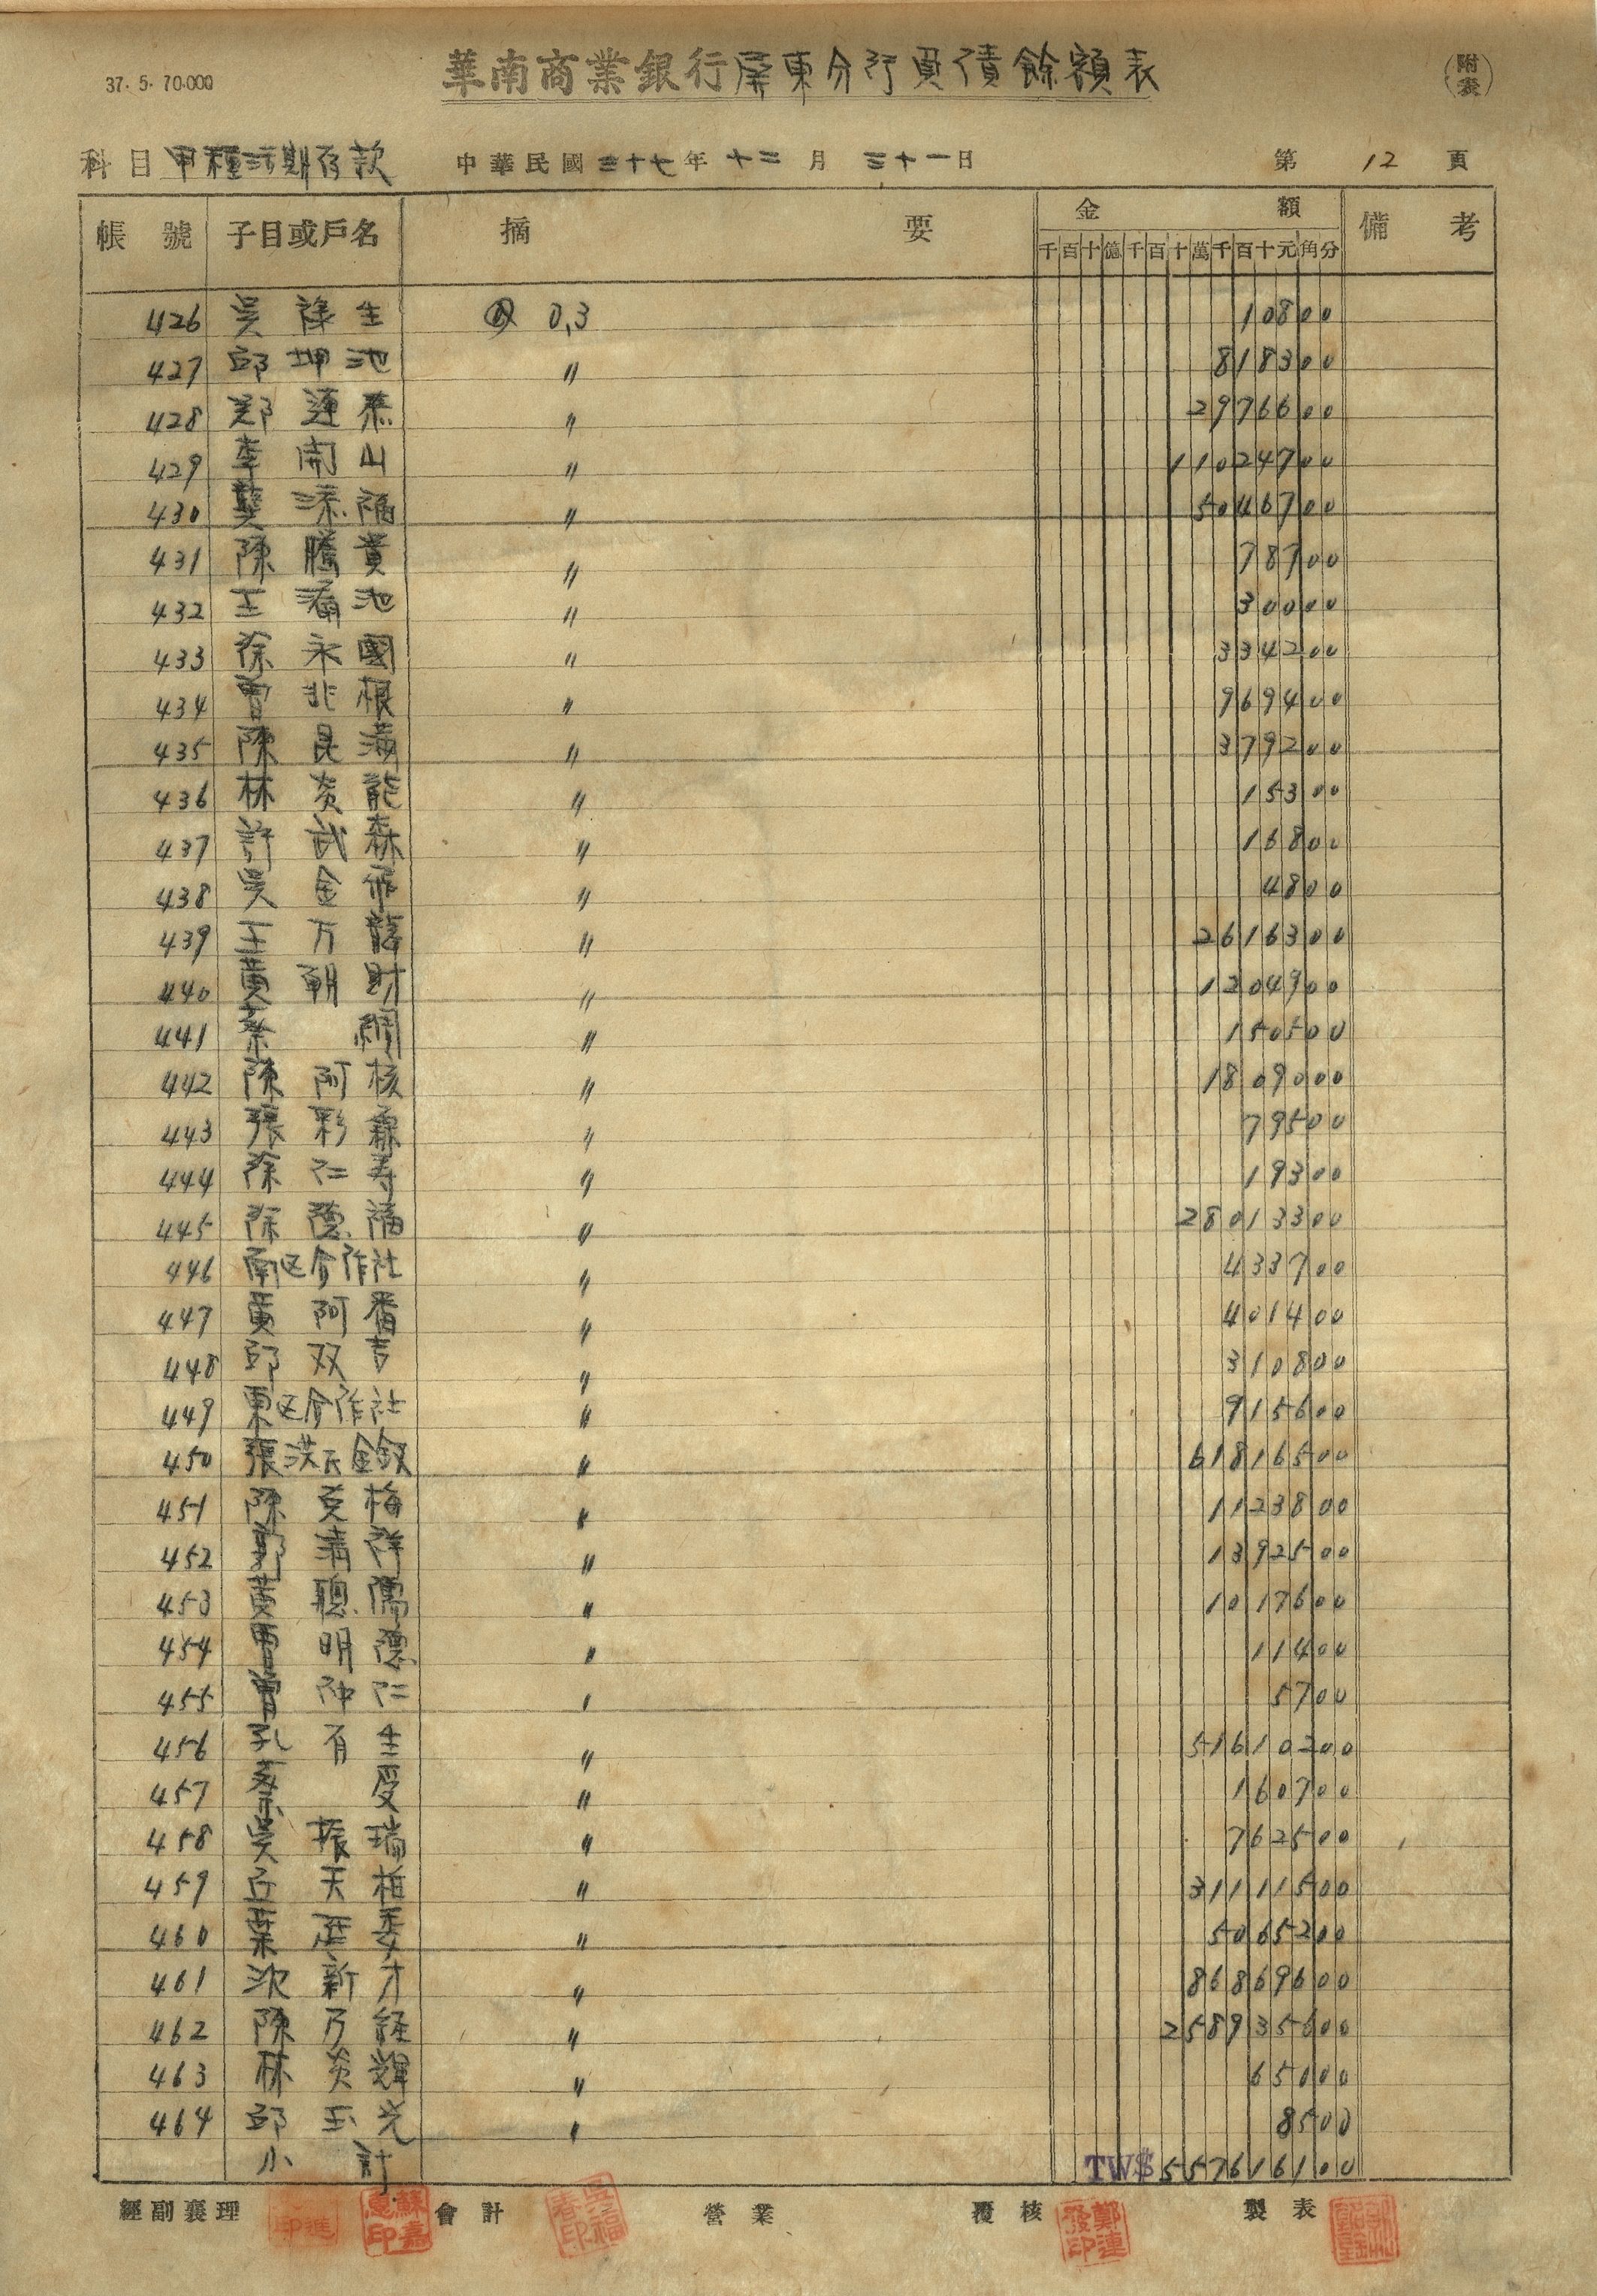 37. 5. 70.000
華南商業銀行屏東分行負債餘額表
(附表)
科目 甲種活期存款 中華民國三十七年十二月三十一日 第 12 頁
帳號 子目或戶名 摘要 金額 備考
千百十億千百十萬千百十元角分
426 吳祿生 @ 0,3 10800
427 邱坤池 〃 818300
428 鄭連 〃 2976600
429 李開山 〃 11024700
430 龔添福 〃 5046700
431 陳騰貴 〃 78700
432 王 池 〃 30000
433 徐永國 〃 334200
434 曹北根 〃 969400
435 陳昆滿 〃 379200
436 林炎龍 〃 15300
437 許武森 〃 16800
438 吳金 〃 4800
439 王万龍 〃 2616300
440 黃朝財 〃 1204900
441 蔡 〃 150500
442 陳阿核 〃 1809000
443 張彩霖 〃 79500
444 徐仁寿 〃 19300
445 徐德福 〃 28013300
446 南区合作社 〃 433700
447 黃阿番 〃 401400
448 邱双吉 〃 310800
449 東区合作社 〃 915600
450 張洪氏金釵 〃 61816500
451 陳英梅 〃 1123800
452 鄭清祥 〃 1392500
453 黃聰儒 〃 1017600
454 曹明德 〃 11400
455 曾仲仁 〃 5700
456 孔有生 〃 51610200
457 蔡受 〃 160700
458 吳振瑞 〃 762500
459 丘天 〃 31111500
460 葉廷 〃 5065200
461 沈新才 〃 86869600
462 陳乃経 〃 258935600
463 林炎輝 〃 65000
464 邱玉光 〃 8500
小計 TW$ 557616100
經副襄理 會計 營業 覆核 製表
蘇嘉惠印
吳福春印
鄭連發印